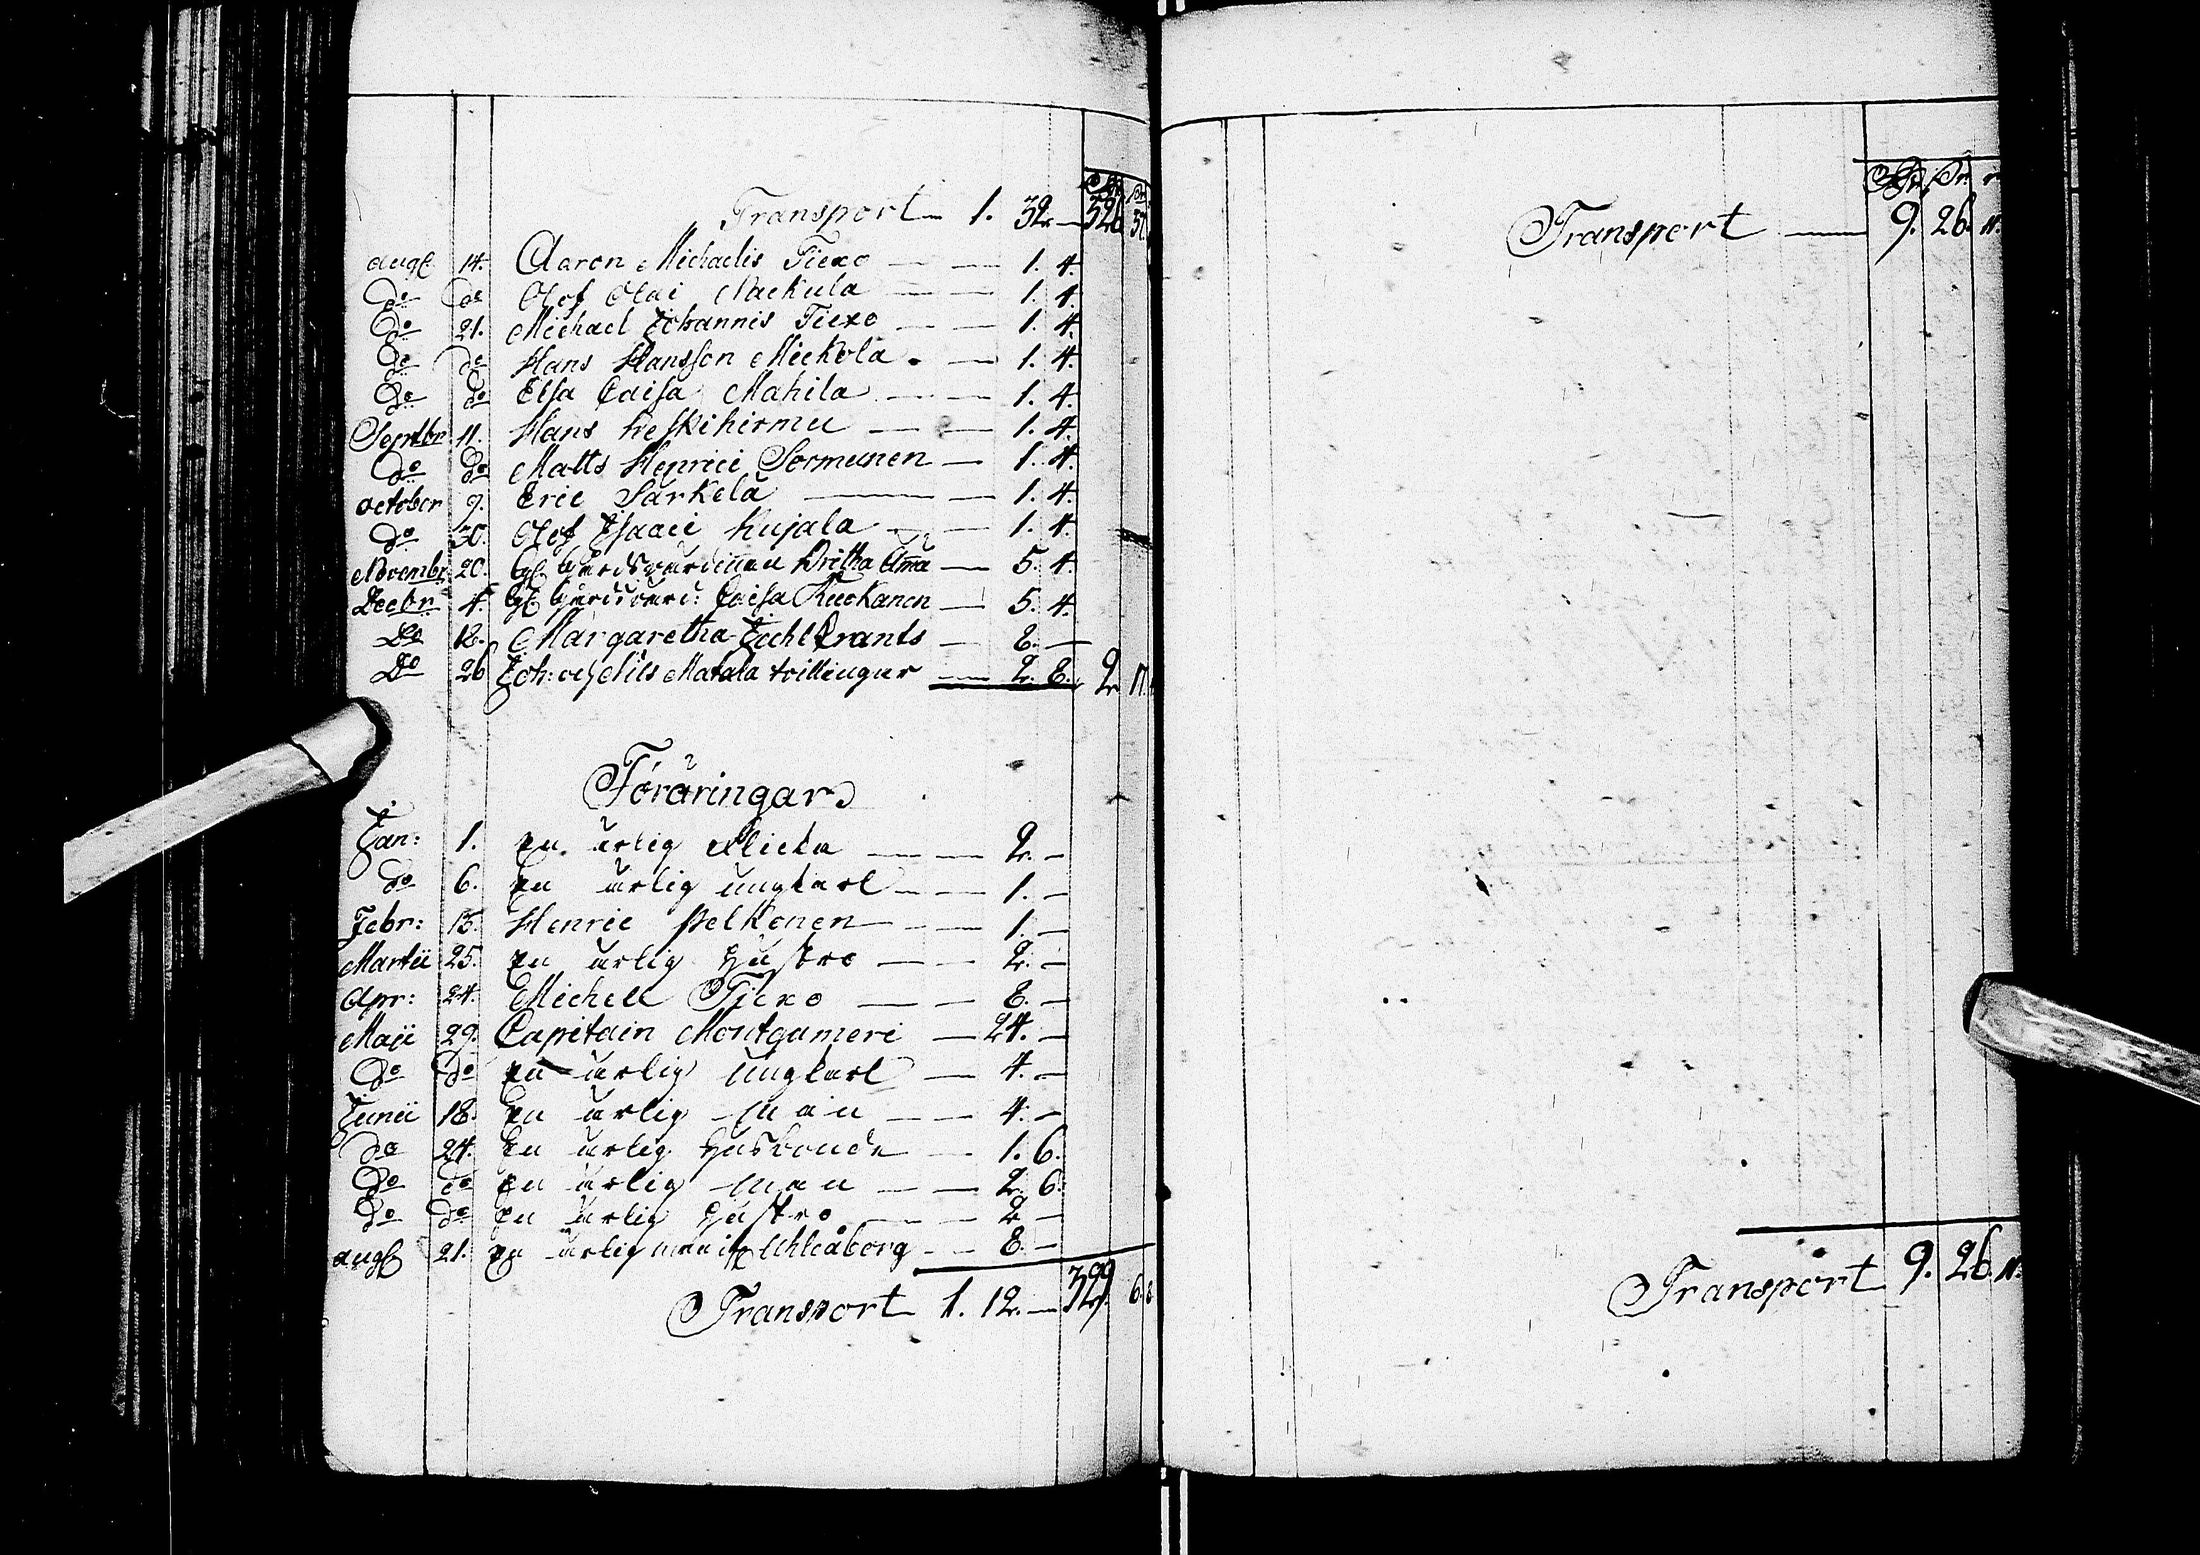 Transport 1. 32. 326 37
Aug. 14. Aaron Michaelis Tiexo 1. 4.
do do Olof Olai Mackula 1. 4.
do 21. Michael Johannis Tiexo 1. 4.
do do Hans Hansson Mickola 1. 4.
do do Elsa Caisa Mahila 1. 4.
Septbr 11. Hans Keskihirmu 1. 4.
do do Matts Henrici Sormunen 1. 4.
October 9. Eric Särkelä 1. 4.
do 30. Olof Isaaci Kujala 1. 4.
Novembr. 20. Britha 5. 4.
Decbr 4. Caisa Kuokanen 5. 4.
Do 18. Margaretha 8. —
Do 26 Joh: och Nils Matala tvillingar 2. 8. 2 17
Föräringar
Jan: 1. en ärlig Flicka 2. —
do 6. en ärlig ungkarl 1. —
Febr: 13. Henric Pelkonen 1. —
Martii 25. en ärlig Hustro 2. —
Apr: 24. Michell Tiexo 8. —
Maji 29. Capitain Montgomeri 24. —
do do en ärlig ungkarl 4. —
Junii 18. en ärlig man 4. —
do 24. en ärlig Husbonde 1. 6.
do do en ärlig man 2. 6.
do do en ärlig Hustro 2 —
Aug. 21. en ärlig man Uhleåborg 8. —
Transport 1. 12. — 329. 6.
Transport 9. 26. 11.
Transport 9. 26. 11.